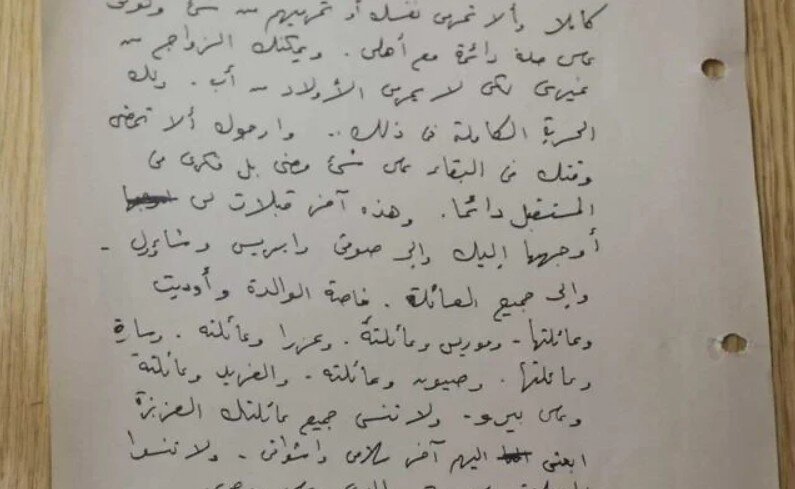 كاملا وألا تحرمى نفسك أو تحرميهم من شئ وتكونى
على صلة دائمة مع أهلى. ويمكنك الزواج من
غيرى لكى لا يحرم الأولاد من أب. ولك
الحرية الكاملة فى ذلك.. وارجوك ألا تضيعى
وقتك فى البكاء على شئ مضى بل فكرى فى
المستقبل دائما. وهذه آخر قبلات لى
أوجهها إليك والى صوفى وايريس وشاؤول -
والى جميع العائلة. خاصة الوالدة وأوديت
وعائلتها - وموريس وعائلته. وعزرا وعائلته. وسارة
وعائلتها. وصيون وعائلته - والفريد وعائلته
ولا تنسى جميع عائلتك العزيزة
ابعثى اليهم آخر سلامى واشواقى - ولا تنسوا